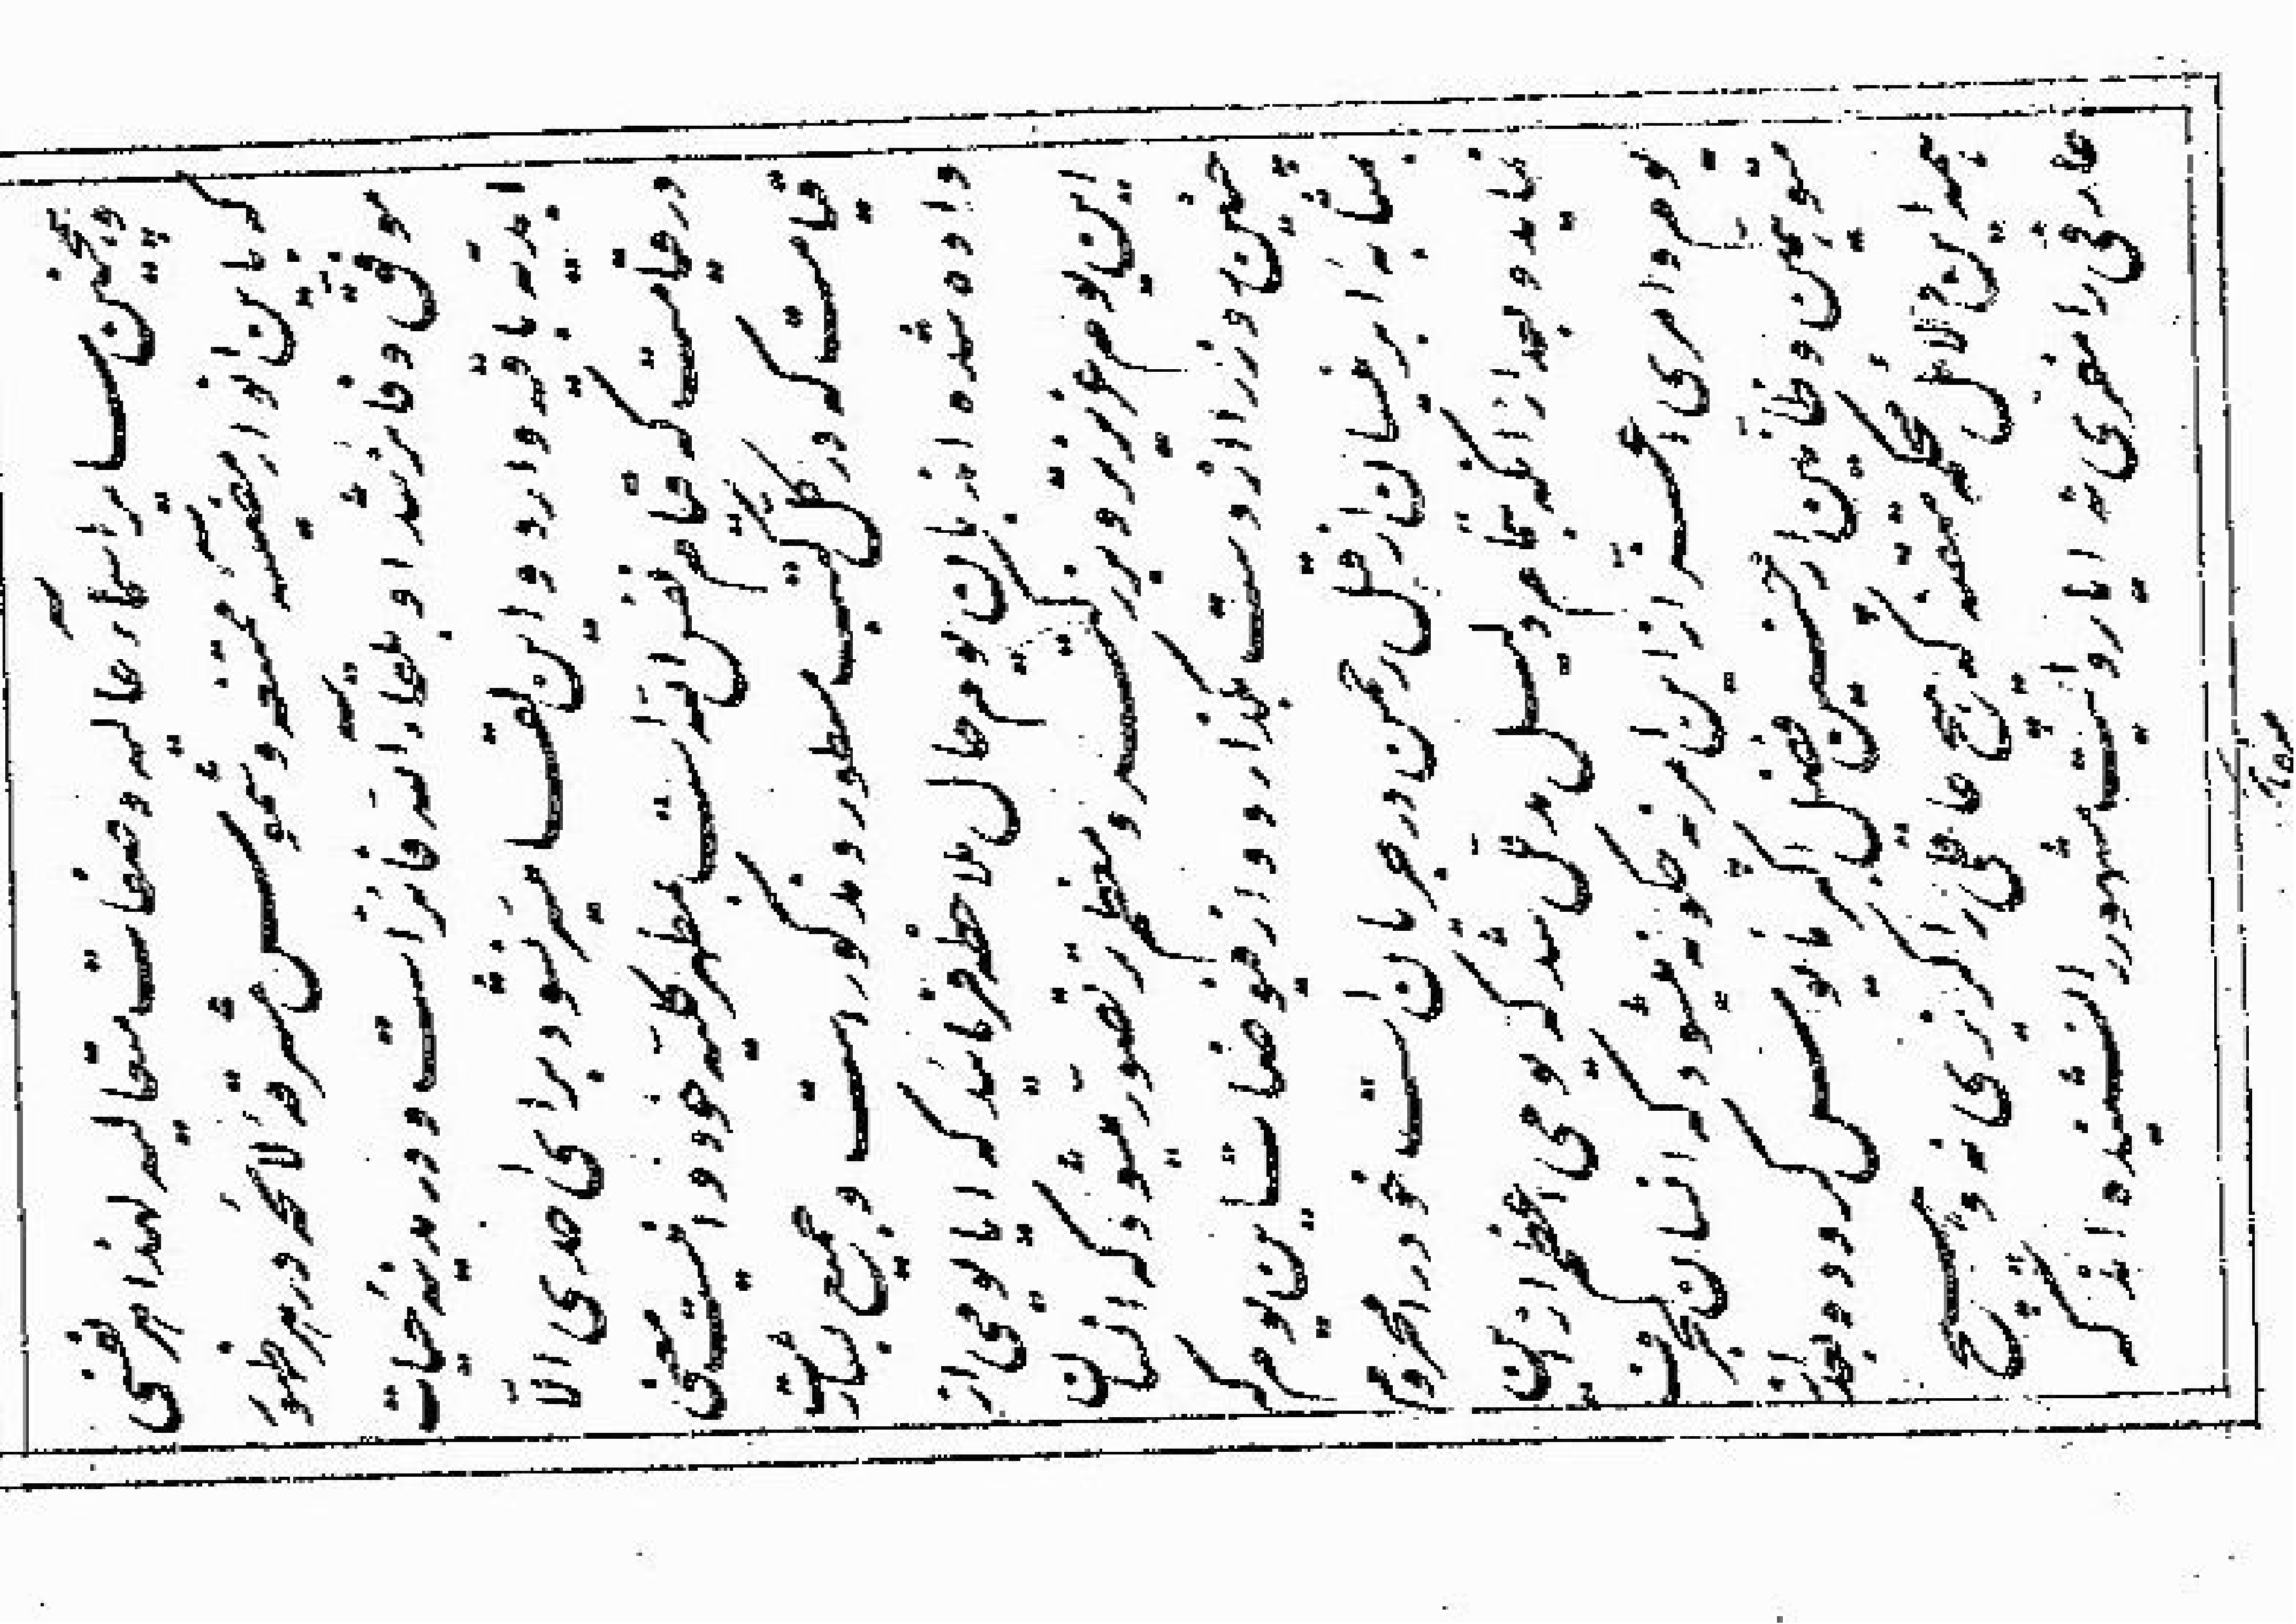 و همچنین سایر اسماء عالیه و صفات متعالیه لهذا هر نفسی
که باین انوار مضیئه ممتنعه و شموس مشرقه لائحه در هر ظهور
موفق و فائز شد او بلقاء الله فائز است و در مدینه حیات
ابدیه باقیه وارد و این لقا میسر نشود برای احدی الّا
در قیامت که قیام نفس الله است بمظهر کلیه خود و اینست معنی
قیامت که در کل کتب مسطور و مذکور است و جمیع بشارت
داده شده‌اند بآن یوم حال ملاحظه فرمائید که آیا یومی از
این یوم عزیزتر و بزرگتر و معظم‌تر تصور میشود که انسان
چنین روز را از دست بگذارد و از فیوضات این یوم که
بمثابه ابر نیسان از قبل رحمن در جریان است خود را محروم
نماید و بعد از آنکه بتمام دلیل مدلل شد که یومی اعظم از این
یوم و امری اعز از این امر نه چگونه میشود که انسان بحرف
متوهمین و ظانین از چنین فضل اکبر مأیوس گردد و بعد از
همه این دلائل محکمه متقنه که هیچ عاقلی را گریزی نه و هیچ
عارفی را مفری نه آیا روایت مشهور را نشنیده‌اند که